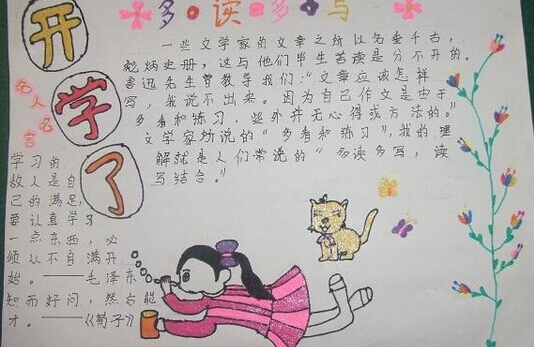 开学了
多·读多·写
一些文学家的文章之所以名垂千古,
彪炳史册,这与他们毕生苦读是分不开的。
鲁迅先生曾教导我们:“文章应该怎样
写,我说不出来。因为自己作文是由于
多看和练习,此外并无心得或方法的。”
文学家所说的“多看和练习”,我的理
解就是人们常说的“多读多写,读
写结合。”
名人名言
学习的
敌人是自
己的满足,
要认真学习
一点东西,必
须从不自满开
始。——毛泽东
知而好问,然后能
才。——《荀子》